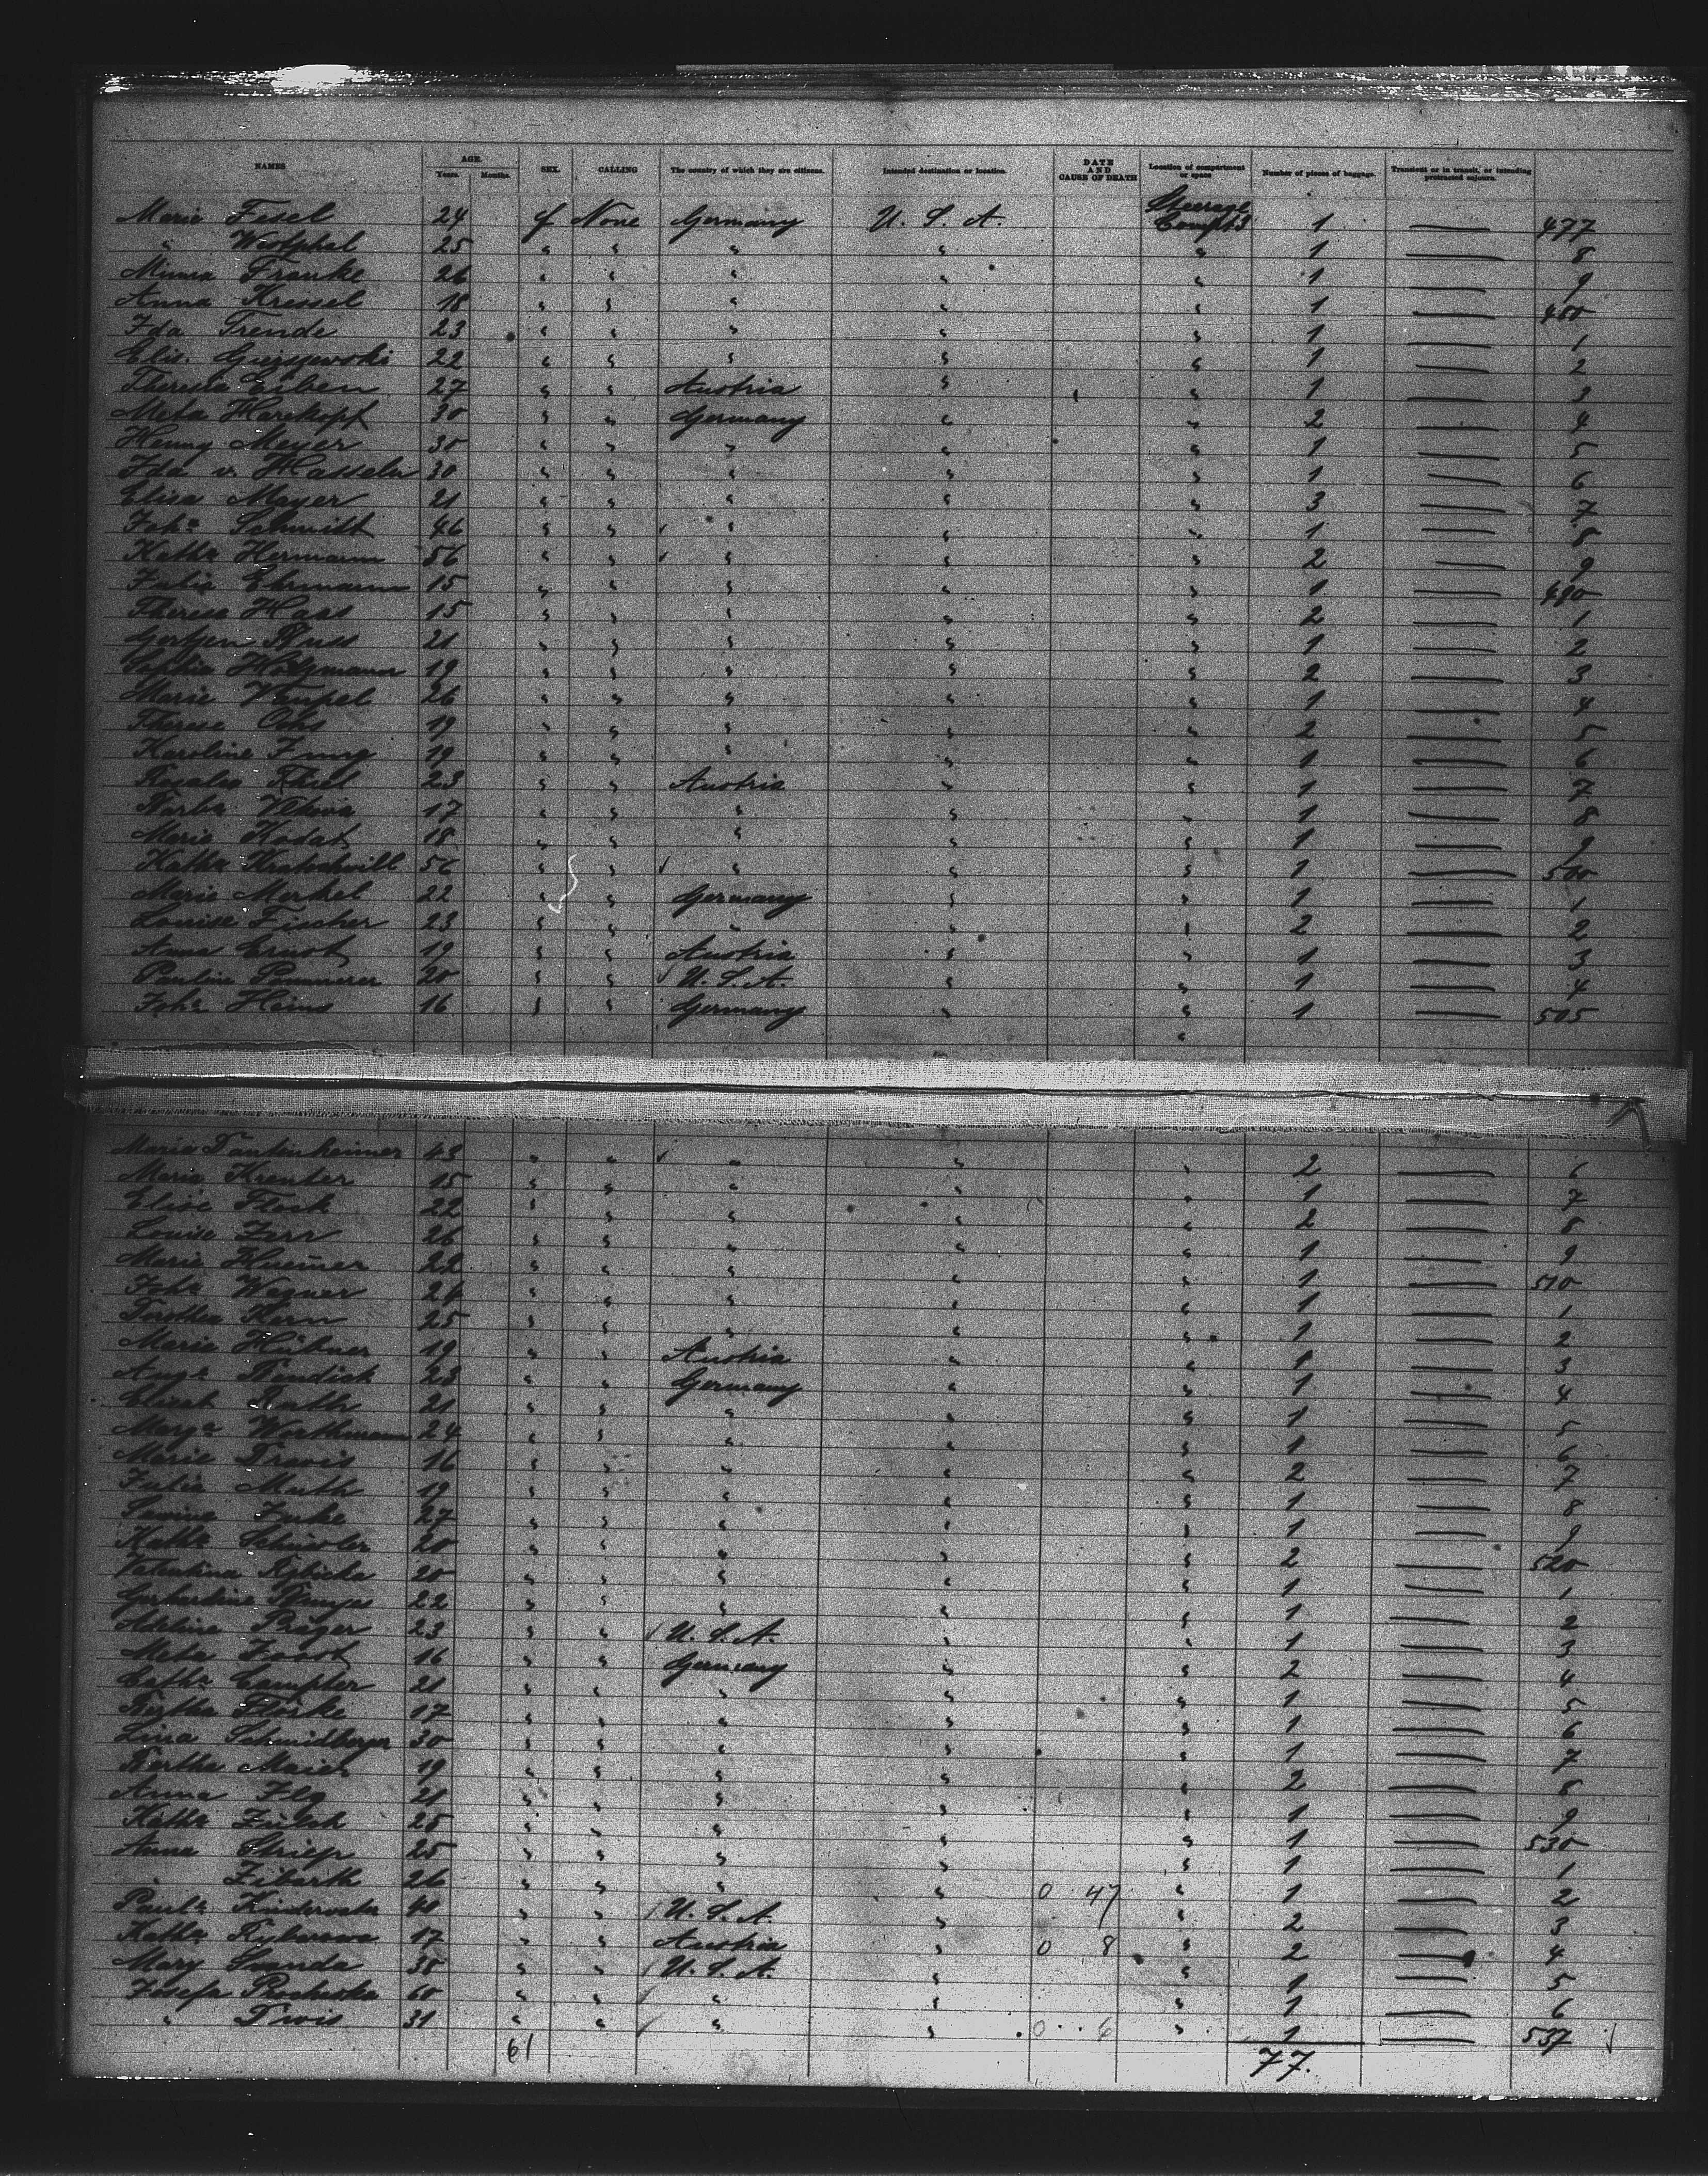 NAMES AGE. Years. Months. SEX. CALLING The country of which they are citizens. Intended destination or location. DATE AND CAUSE OF DEATH Location of compartment or space Number of pieces of baggage. Transient or in transit, or intending protracted sojourn.
Marie Fesel 24 f None Germany U. S. A. Steerage Compt 3 1 — 477
" Westphal 25 " " " " " 1 — 8
Minna Franke 26 " " " " " 1 — 9
Anna Kressel 18 " " " " " 1 — 480
Ida Trende 23 " " " " " 1 — 1
Elis. 22 " " " " " 1 — 2
Therese 27 " " Austria " " 1 — 3
Meta Harekopf 30 " " Germany " " 2 — 4
Henny Meyer 30 " " " " " 1 — 5
Ida v. Hasseln 30 " " " " " 1 — 6
Elisa Meyer 21 " " " " " 3 — 7
Joha Schmidt 46 " " " " " 1 — 8
Katha Hermann 56 " " " " " 2 — 9
Julie Ehrmann 15 " " " " " 1 — 490
Therese Haas 15 " " " " " 2 — 1
21 " " " " " 1 — 2
Sophie Holzmann 19 " " " " " 2 — 3
Marie Wimpel 26 " " " " " 1 — 4
Therese Ochs 19 " " " " " 2 — 5
Karoline Jung 19 " " " " " 1 — 6
Rosalia Thiel 23 " " Austria " " 1 — 7
Barba 17 " " " " " 1 — 8
Marie Kodat 18 " " " " " 1 — 9
Katha 56 " " " " " 1 — 500
Marie Merkel 22 " " Germany " " 1 — 1
Louise Fischer 23 " " " " " 2 — 2
Anna Ernst 19 " " Austria " " 1 — 3
Pauline Pommerer 20 " " U. S. A. " " 1 — 4
Joha Heins 16 " " Germany " " 1 — 505
Marie Tautenheimer 43 " " " " " 2 — 6
Marie Kreuter 15 " " " " " 1 — 7
Elise Flock 22 " " " " " 2 — 8
Louise Irr 26 " " " " " 1 — 9
Marie 22 " " " " " 1 — 510
Joha Wegner 24 " " " " " 1 — 1
Dorothea Kern 25 " " " " " 1 — 2
Marie Hübner 19 " " Austria " " 1 — 3
Auga Bendick 23 " " Germany " " 1 — 4
Elisab Barth 21 " " " " " 1 — 5
Marga Worthmann 24 " " " " " 1 — 6
Marie Travis 16 " " " " " 2 — 7
Julia Muth 19 " " " " " 1 — 8
27 " " " " " 1 — 9
Katha Schindler 20 " " " " " 2 — 520
Valentina Rybicka 20 " " " " " 1 — 1
22 " " " " " 1 — 2
Adeline Präger 23 " " U. S. A. " " 1 — 3
Meta Joost 16 " " Germany " " 2 — 4
Catha Campter 21 " " " " " 1 — 5
Bertha Florke 17 " " " " " 1 — 6
Lina Schmidberger 30 " " " " " 1 — 7
Bertha Maier 19 " " " " " 2 — 8
Anna Ilg 21 " " " " " 1 — 9
Katha Zülch 25 " " " " " 1 — 530
Anna Striep 25 " " " " " 1 — 1
" Zibarth 26 " " " " 0 47 " 1 — 2
Paula Kindervater 40 " " U. S. A. " " 2 — 3
Katha 17 " " Austria " 0 8 " 2 — 4
Mary Svanda 38 " " U. S. A. " " 1 — 5
Josefa Prochaska 60 " " " " " 1 — 6
" Divis 31 " " " " 0 6 " 1 — 537
61 77.